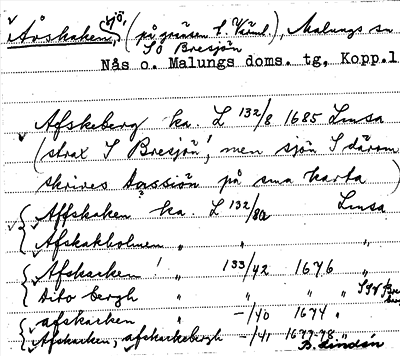 Avskaken, sjö, (på gränsen t. Värml), Malungs sn
SO Bresjön
Nås o. Malungs doms. tg, Kopp.l
Afskeberg ka. L 132/8 1685 Lmsa
(strax S Bresjön!, men sjön S därom
skrives Aassiön på sma karta )
Affskaken ka. L 132/8a Lmsa
Afskakholmen " " "
Afskarken ! " 133/42 1676 "
Dito bergh " " " "
afskarken " -/40 1674 "
Afskarken, afskarkebergh -/41 1677-78
B. Lindén